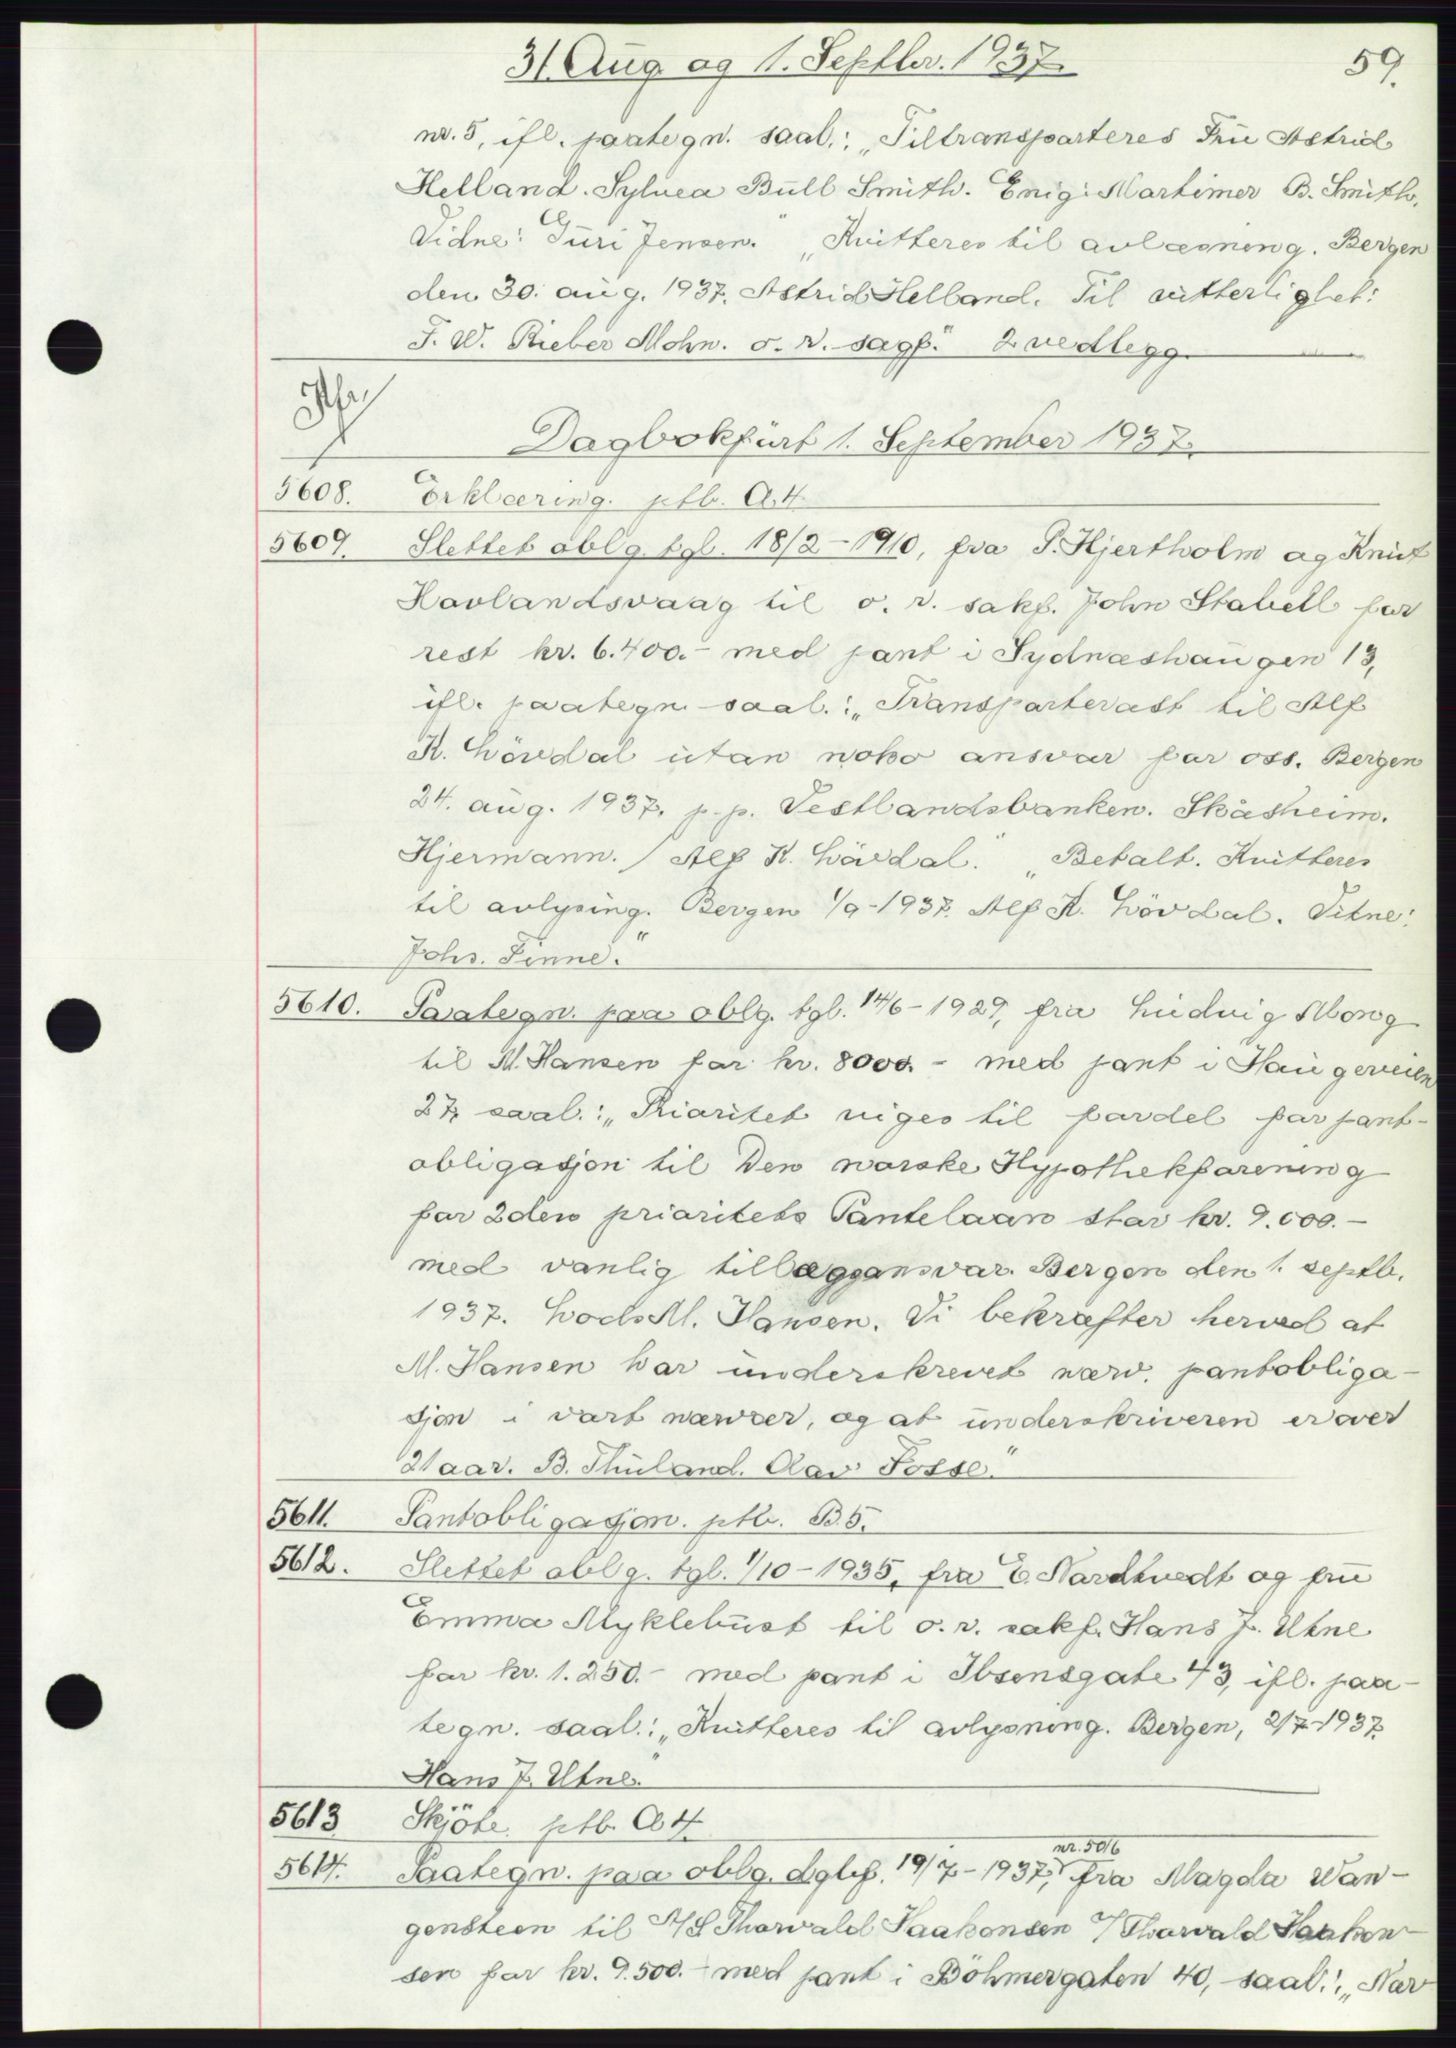 31 Aug og 1. Septbr. 1937.
59.
nr. 5, ifl. paategn. saal.: „Tiltransporteres Fru Astrid
Helland. Sylvea Bull Smith. Enig: Mortimer B. Smith.
Vidne: Guri Jensen." „Kvitteres til avlæsning. Bergen
den 30. aug. 1937. Astrid Helland. Til vitterlighet:
F. W. Rieber Mohn. o. r. sagf." 2 vedlegg.
Dagbokfürt 1. September 1937.
5608. Erklæring. ptb. A.4.
5609. Slettet oblg. tgl. 18/2-1910, fra P. Hjertholm og Knut
Havlandsvaag til o. r. sakf. John Stabell for
rest kr. 6.400.- med pant i Sydneshaugen 13,
ifl. paategn. saal.: „Transporterast til Alf
K. Lövdal utan noko ansvar for oss. Bergen
24. aug. 1937. p. p. Vestlandsbanken. Skåsheim.
Hjermann. / Alf K. Lövdal." „Betalt. Kvitteres
til avlysing. Bergen 1/9-1937. Alf K. Lövdal. Vitne:
Johs. Finne."
5610. Paategn. paa oblg. tgl. 14/6-1929, fra Ludvig Mong
til M. Hansen for kr. 8000.- med pant i Haugeveien
27, saal.: „Prioritet viges til fordel for pant-
obligasjon til Den norske Hypothekforening
for 2den prioritets Pantelaan stor kr. 9.000.-
med vanlig tilleggsansvar. Bergen den 1. septb.
1937. M. Hansen. Vi bekrefter herved at
M. Hansen har underskrevet nærv. pantobliga-
sjon i vort nærvær, og at underskriveren er over
21 aar. B. Thuland. Olav Fosse."
5611. Pantobligasjon. ptb. B.5.
5612. Slettet oblg. tgl. 1/10-1935, fra E. Nordtvedt og fru
Emma Myklebust til o. r. sakf. Hans J. Utne
for kr. 1.250.- med pant i Ibsensgate 43, ifl. paa-
tegn. saal.: „Kvitteres til avlysning. Bergen, 2/7-1937.
Hans J. Utne."
5613 Skjöte. ptb. A 4.
nr. 5016
5614. Paategn. paa oblg. dglf. 19/7-1937, fra Magda Wan-
gensteen til A/S Thorvald Haakonsen v/ Thorvald Haakon-
sen for kr. 9.500.- med pant i Böhmergaten 40, saal.: „Nær